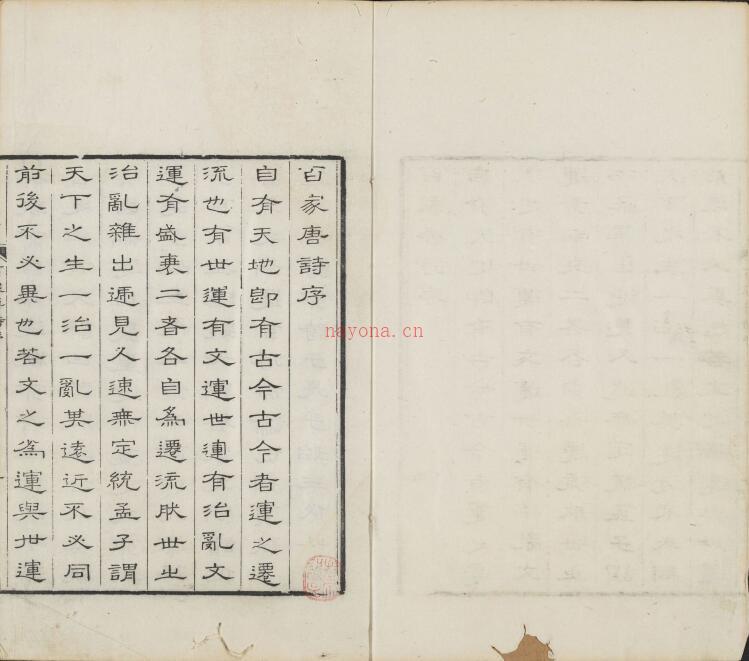 百家唐詩序
自有天地卽有古今古今者運之遷
流也有世運有文運世運有治亂文
運有盛衰二者各自爲遷流然世之
治亂雜出遞見久速無定統孟子謂
天下之生一治一亂其遠近不必同
前後不必異也若文之爲運與世運
nayona.cn